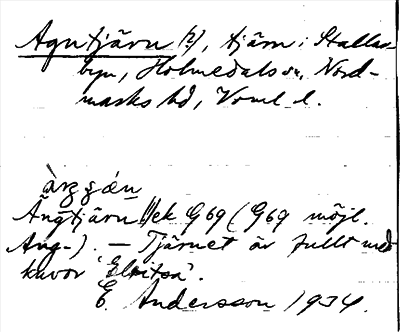 Agntjärn (?), tjärn i Stallae-
byn, Holmedals sn, Nord-
marks hd, Vrml l.
Ängtjärn ek G69 (G69 möjl.
Ang-). – Tjärnet är fullt med
kavor
E. Andersson 1934.